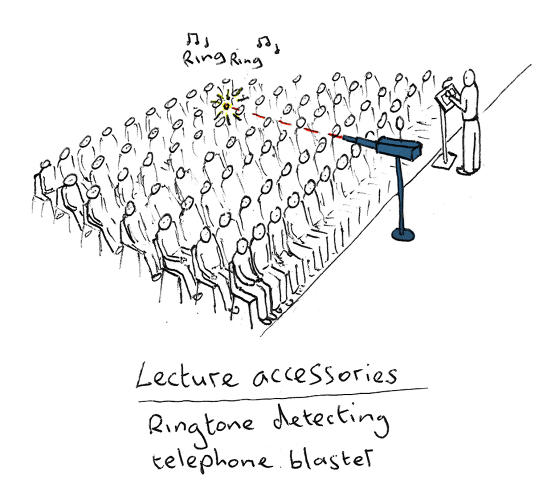 Ring Ring
Lecture accessories
Ringtone detecting
telephone blaster